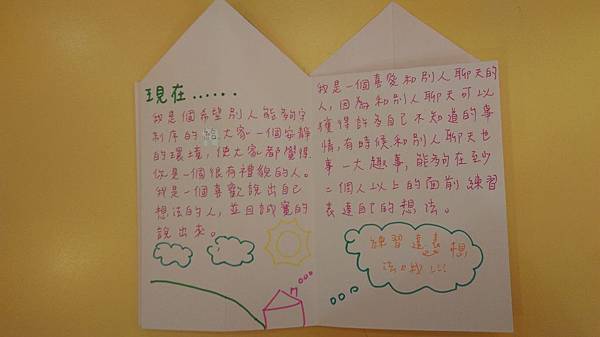 現在......
我是個希望別人能夠守
制序的給大家一個安靜
的環境，使大家都覺得
你是一個很有禮貌的人。
我是一個喜歡說出自己
想法的人，並且誠實的
說出來。
我是一個喜愛和別人聊天的
人，因為和別人聊天可以
獲得許多自己不知道的事
情，有時候和別人聊天也
事一大趣事，能夠在至少
二個人以上的面前練習
表達自己的想法。
練習達表想
法